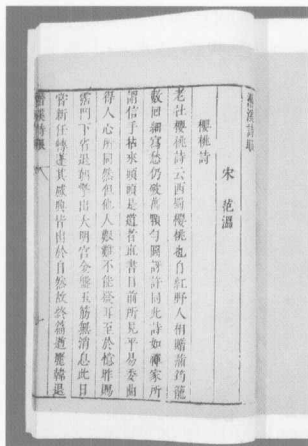 潛溪詩眼
宋 范溫
櫻桃詩
老杜櫻桃詩云西蜀櫻桃也自紅野人相贈滿筠籠
數回細寫愁仍破萬顆勻圓訝許同此詩如禪家所
謂信手拈來頭頭是道者直書目前所見平易委曲
得人心所同然但他人艱難不能發耳至於憶昨賜
霑門下省退朝擎出大明宮金盤玉筯無消息此日
嘗新任轉蓬其感興皆出於自然故終篇遒麗韓退
潛溪詩眼